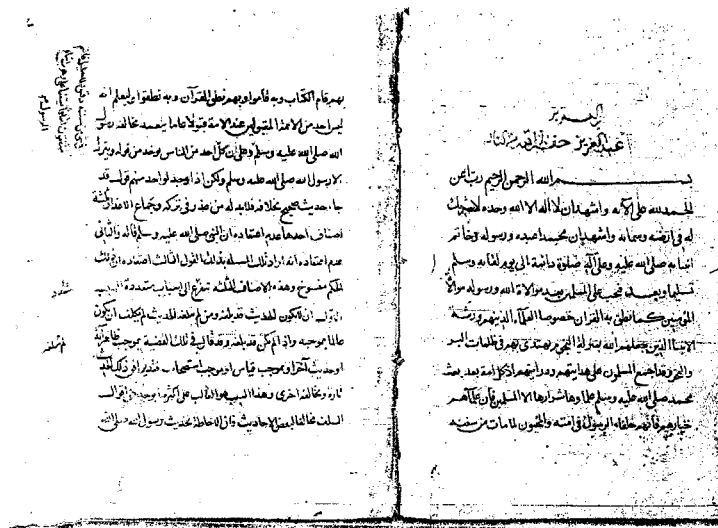 عبد العزيز
بسم الله الرحمن الرحيم رب اعن
الحمد لله على آلائه واشهد ان لا اله الا الله وحده لا شريك
له في ارضه وسمائه واشهد ان محمدا عبده ورسوله وخاتم
انبيائه صلى الله عليه وعلى آله صلوة دائمة الى يوم لقائه وسلم
تسليما وبعد فيجب على المسلمين بعد موالاة الله ورسوله موالاة
المؤمنين كما نطق به القران خصوصا العلماء الذين هم ورثة
الانبيا الذين جعلهم الله بمنزلة النجوم يهتدى بهم في ظلمات البر
والبحر وقد اجمع المسلمون على هدايتهم ودرايتهم اذ كل امة بعد بعث
محمد صلى الله عليه وسلم علماوها شرارها الا المسلمين فان علماءهم
خيارهم فانهم خلفاء الرسول في امته والمحيون لما مات من سنته
بهم قام الكتاب وبه قاموا وبهم نطق القرآن وبه نطقوا وليعلم انه
ليس احد من الائمة المقبولين عند الامة قبولا عاما يتعمد مخالفة رسول
الله صلى الله عليه وسلم وعلى ان كل احد من الناس يوخذ من قوله ويترك
الا رسول الله صلى الله عليه وسلم ولكن اذا وجد لواحد منهم قول قد
جاء حديث صحيح بخلافه فلا بد له من عذر في تركه وجماع الاعذار ثلثة
اصناف احدها عدم اعتقاده ان النبي صلى الله عليه وسلم قاله والثاني
عدم اعتقاده انه اراد تلك المسئلة بذلك القول الثالث اعتقاده ان ذلك
الحكم منسوخ وهذه الاصناف الثلثة تتفرع الى اسباب متعددة السبب
الاول ان لا يكون الحديث قد بلغه ومن لم يبلغه الحديث لم يكلف ان يكون
عالما بموجبه واذا لم يكن قد بلغه وقد قال في تلك القضية بموجب ظاهر آية
او حديث آخر او بموجب قياس او بموجب استصحاب فقد يوافق ذلك الحديث
تارة ويخالفه اخرى وهذا السبب هو الغالب على اكثر ما يوجد من اقوال
السلف مخالفا لبعض الاحاديث فان الاحاطة بحديث رسول الله صلى الله